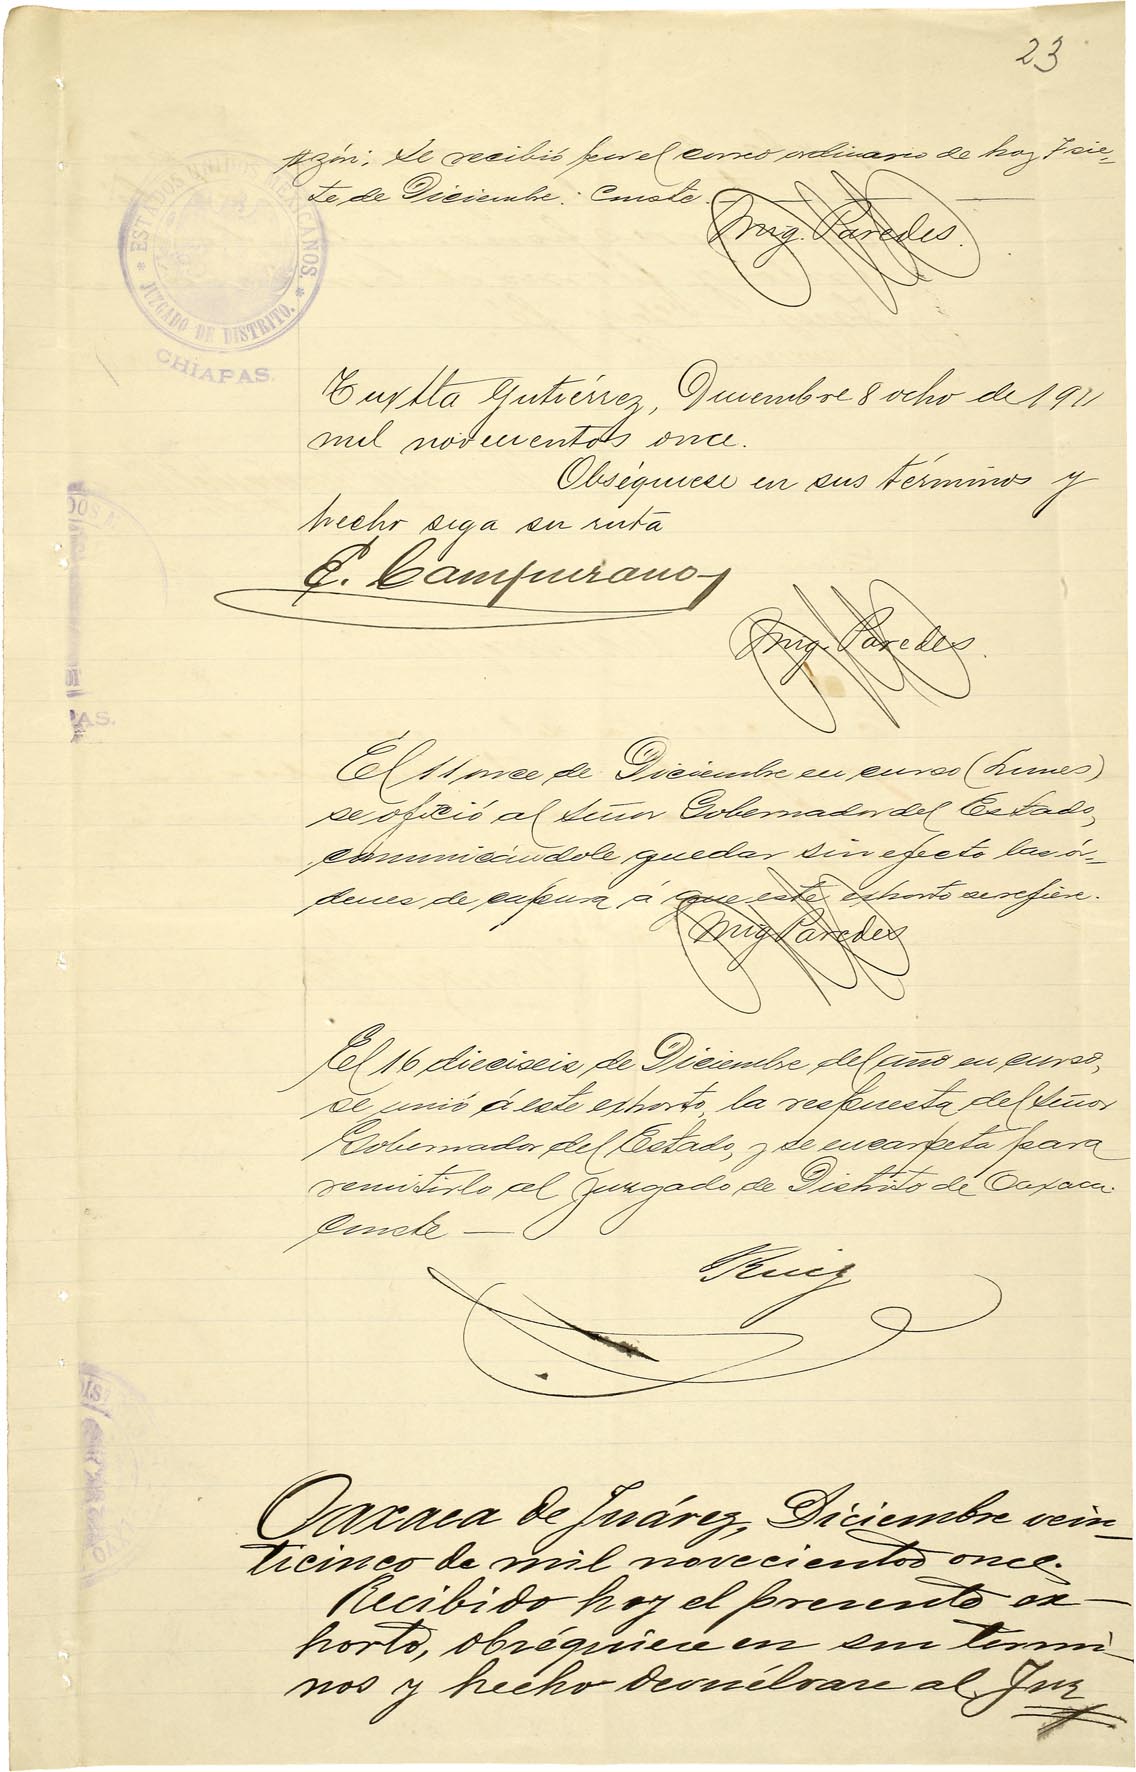 23
zón: Se recibió por el correo ordinario de hoy 7 sie-
te de Diciembre. Conste.
Mig. Paredes.
ESTADOS UNIDOS MEXICANOS.
JUZGADO DE DISTRITO.
CHIAPAS.
Tuxtla Gutiérrez, Diciembre 8 ocho de 1911
mil novecientos once.
Obséquiese en sus términos y
hecho siga su ruta
E. Campuzano
Mig. Paredes.
DOS M
AS.
El 11 once de Diciembre en curso (Lunes)
se ofició al Señor Gobernador del Estado,
comunicándole quedar sin efecto las ór-
denes de captura á que este exhorto se refiere.
Mig Paredes
El 16 dieciseis de Diciembre del año en curso,
se unió á este exhorto, la respuesta del Señor
Gobernador del Estado, y se encarpeta para
remitirlo al Juzgado de Distrito de Oaxaca.
Conste —
Ruiz
Oaxaca de Juárez, Diciembre vein-
ticinco de mil novecientos once.
Recibido hoy el presente ex-
horto, obséquiese en sus térmi-
nos y hecho devuélvase al Juz